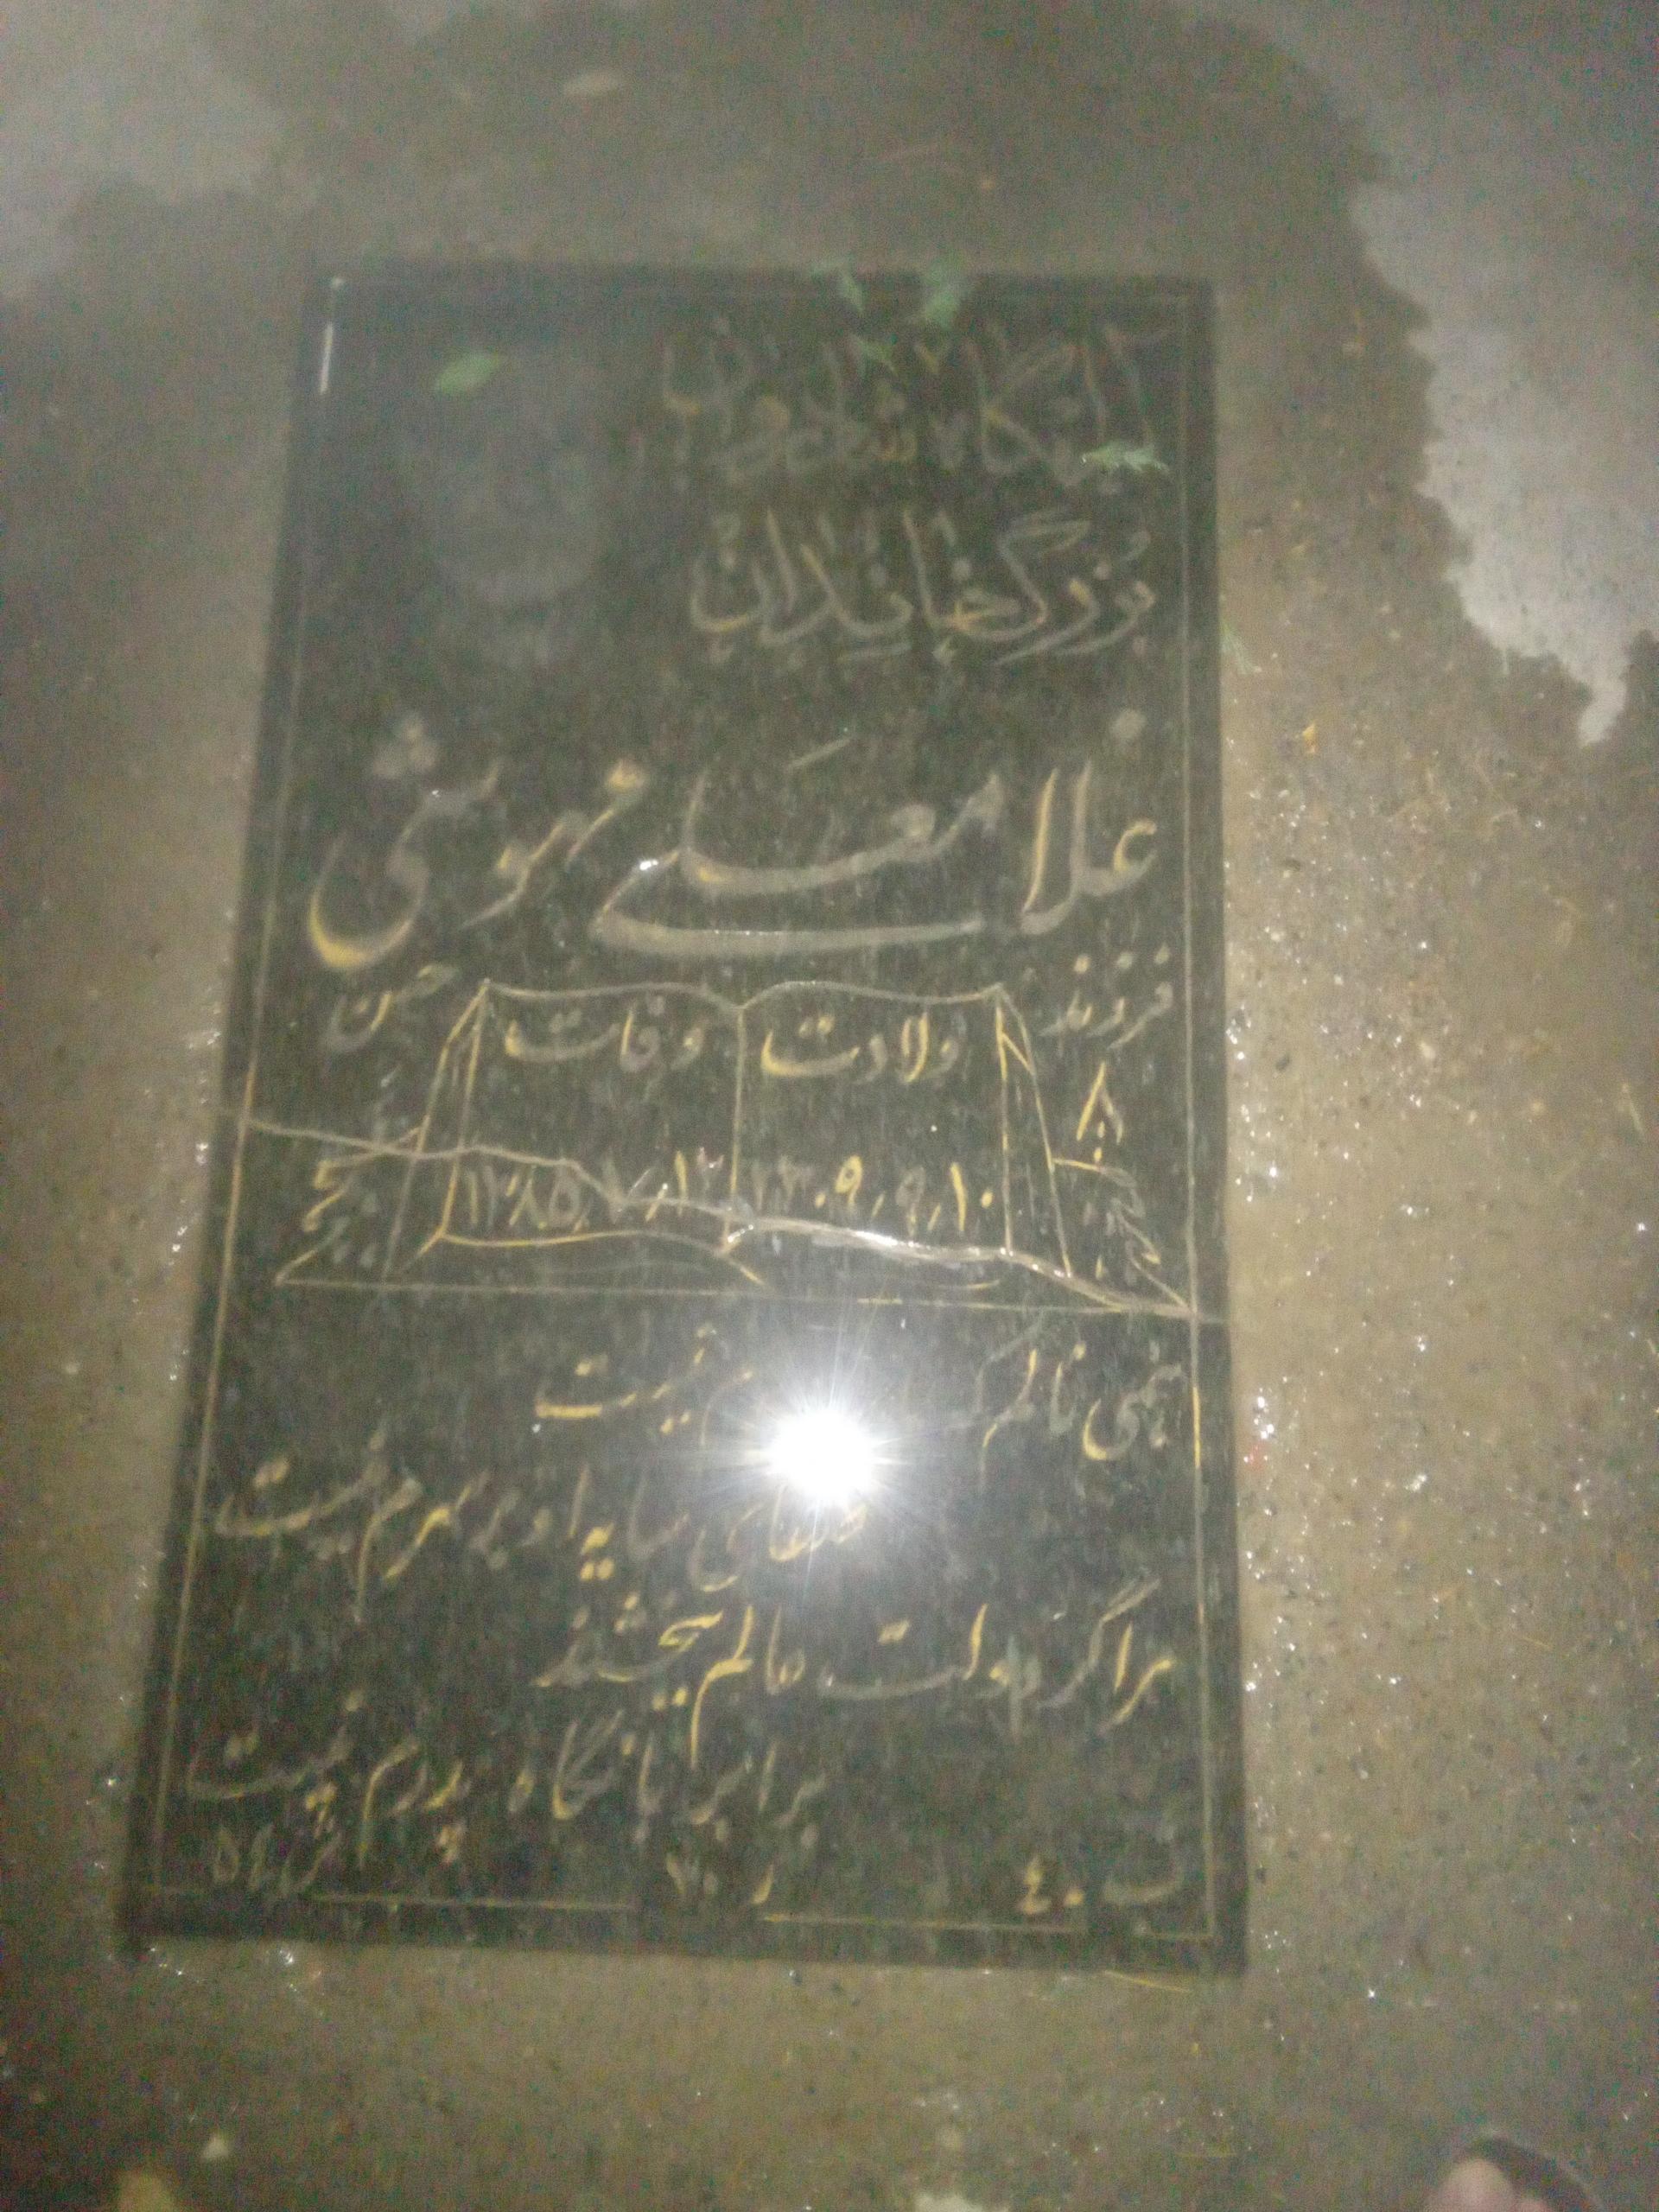 آرامگاه شادروان
بزرگ خاندان
غلامعلی خموشی
فرزند ولادت وفات حسن
۱۳۰۹٫۹٫۱۰ ۱۳۸۵٫۷٫۱۲
همی نالم که
سایه او بر سرم نیست
مرا گر دولت عالم ببخشند
برابر با نگاه پدرم نیست
۴۰